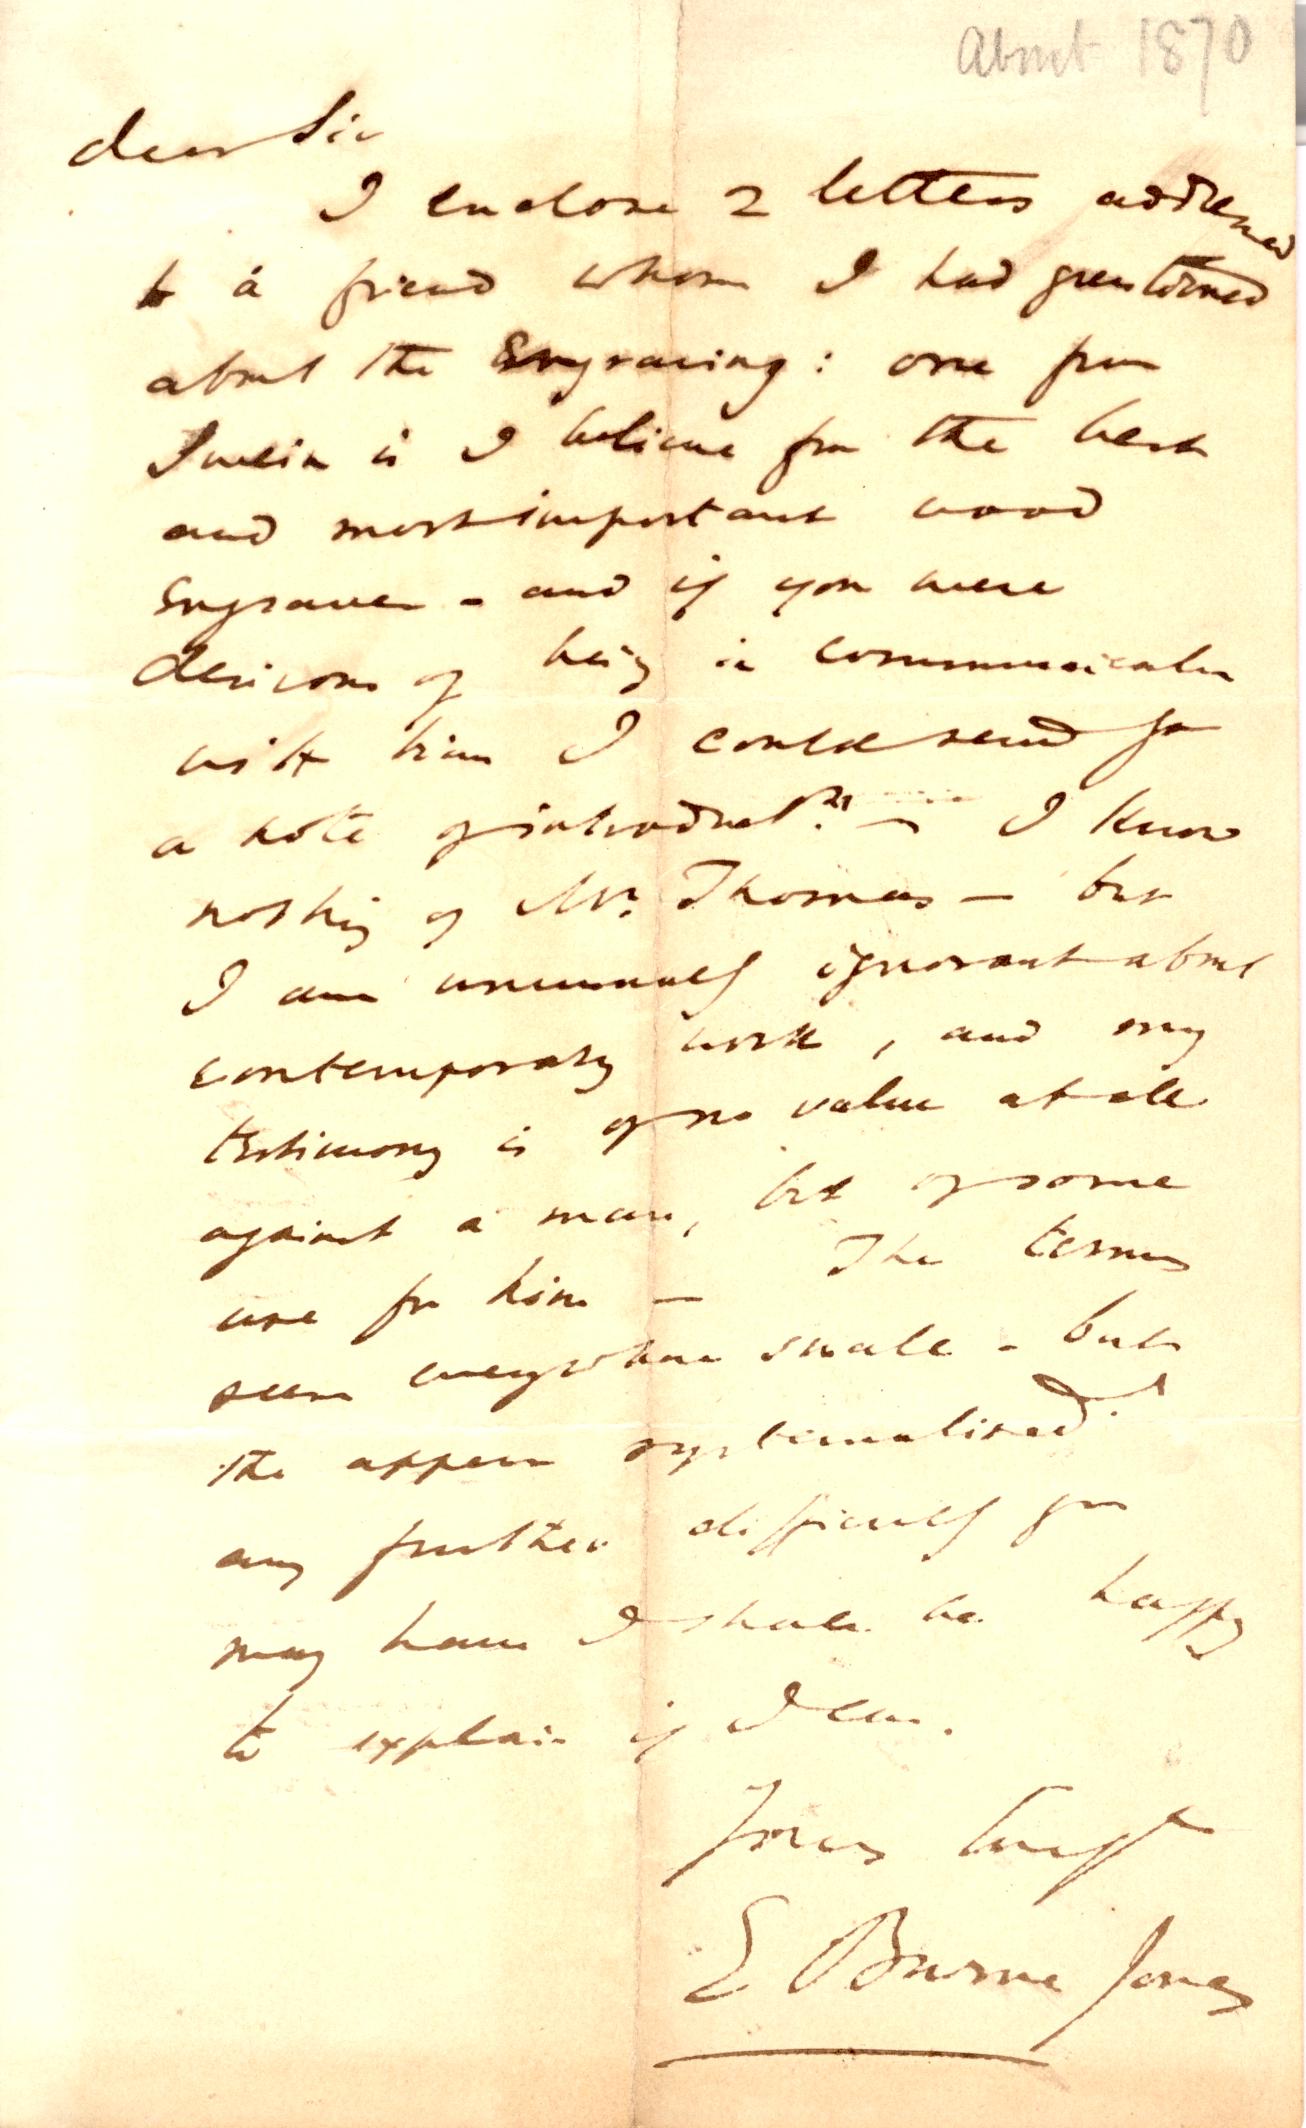 About 1870
dear Sir
I enclose 2 letters addressed
to a friend whom I had questioned
about the Engraving: one from
Swain is I believe from the best
and most important wood
Engraver - and if you were
desirous of being in communication
with him I could send for
a note of introduct.n — I know
nothing of Mr. Thomas — but
I am unusually ignorant about
contemporary work, and my
testimony is of no value at all
against a man, but of some
use for him — The terms
seem everywhere small - but
the appear systematised.
any further difficulty you
may have I shall be happy
to explain if I can.
Yours truly
E Burne Jones